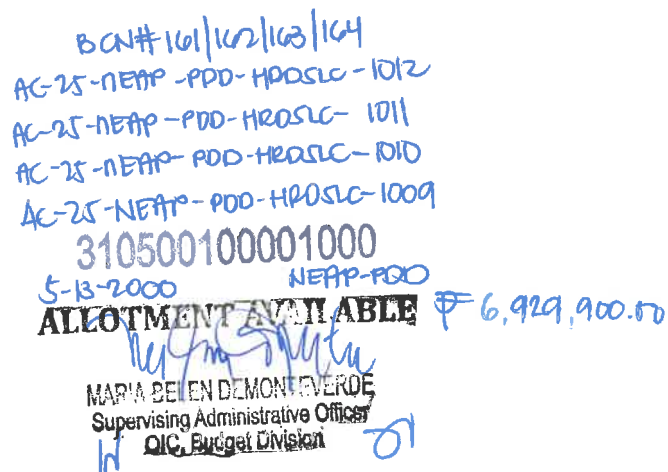 BCN# 161/162/163/164
AC-25-NEAP-PDD-HRDSLC-1012
AC-25-NEAP-PDD-HRDSLC-1011
AC-25-NEAP-PDD-HRDSLC-1010
AC-25-NEAP-PDD-HRDSLC-1009
310500100001000
5-13-2000 NEAP-PDD
ALLOTMENT AVAILABLE ₱ 6,929,900.00
MARIA BELEN DEMONTEVERDE
Supervising Administrative Officer
OIC, Budget Division